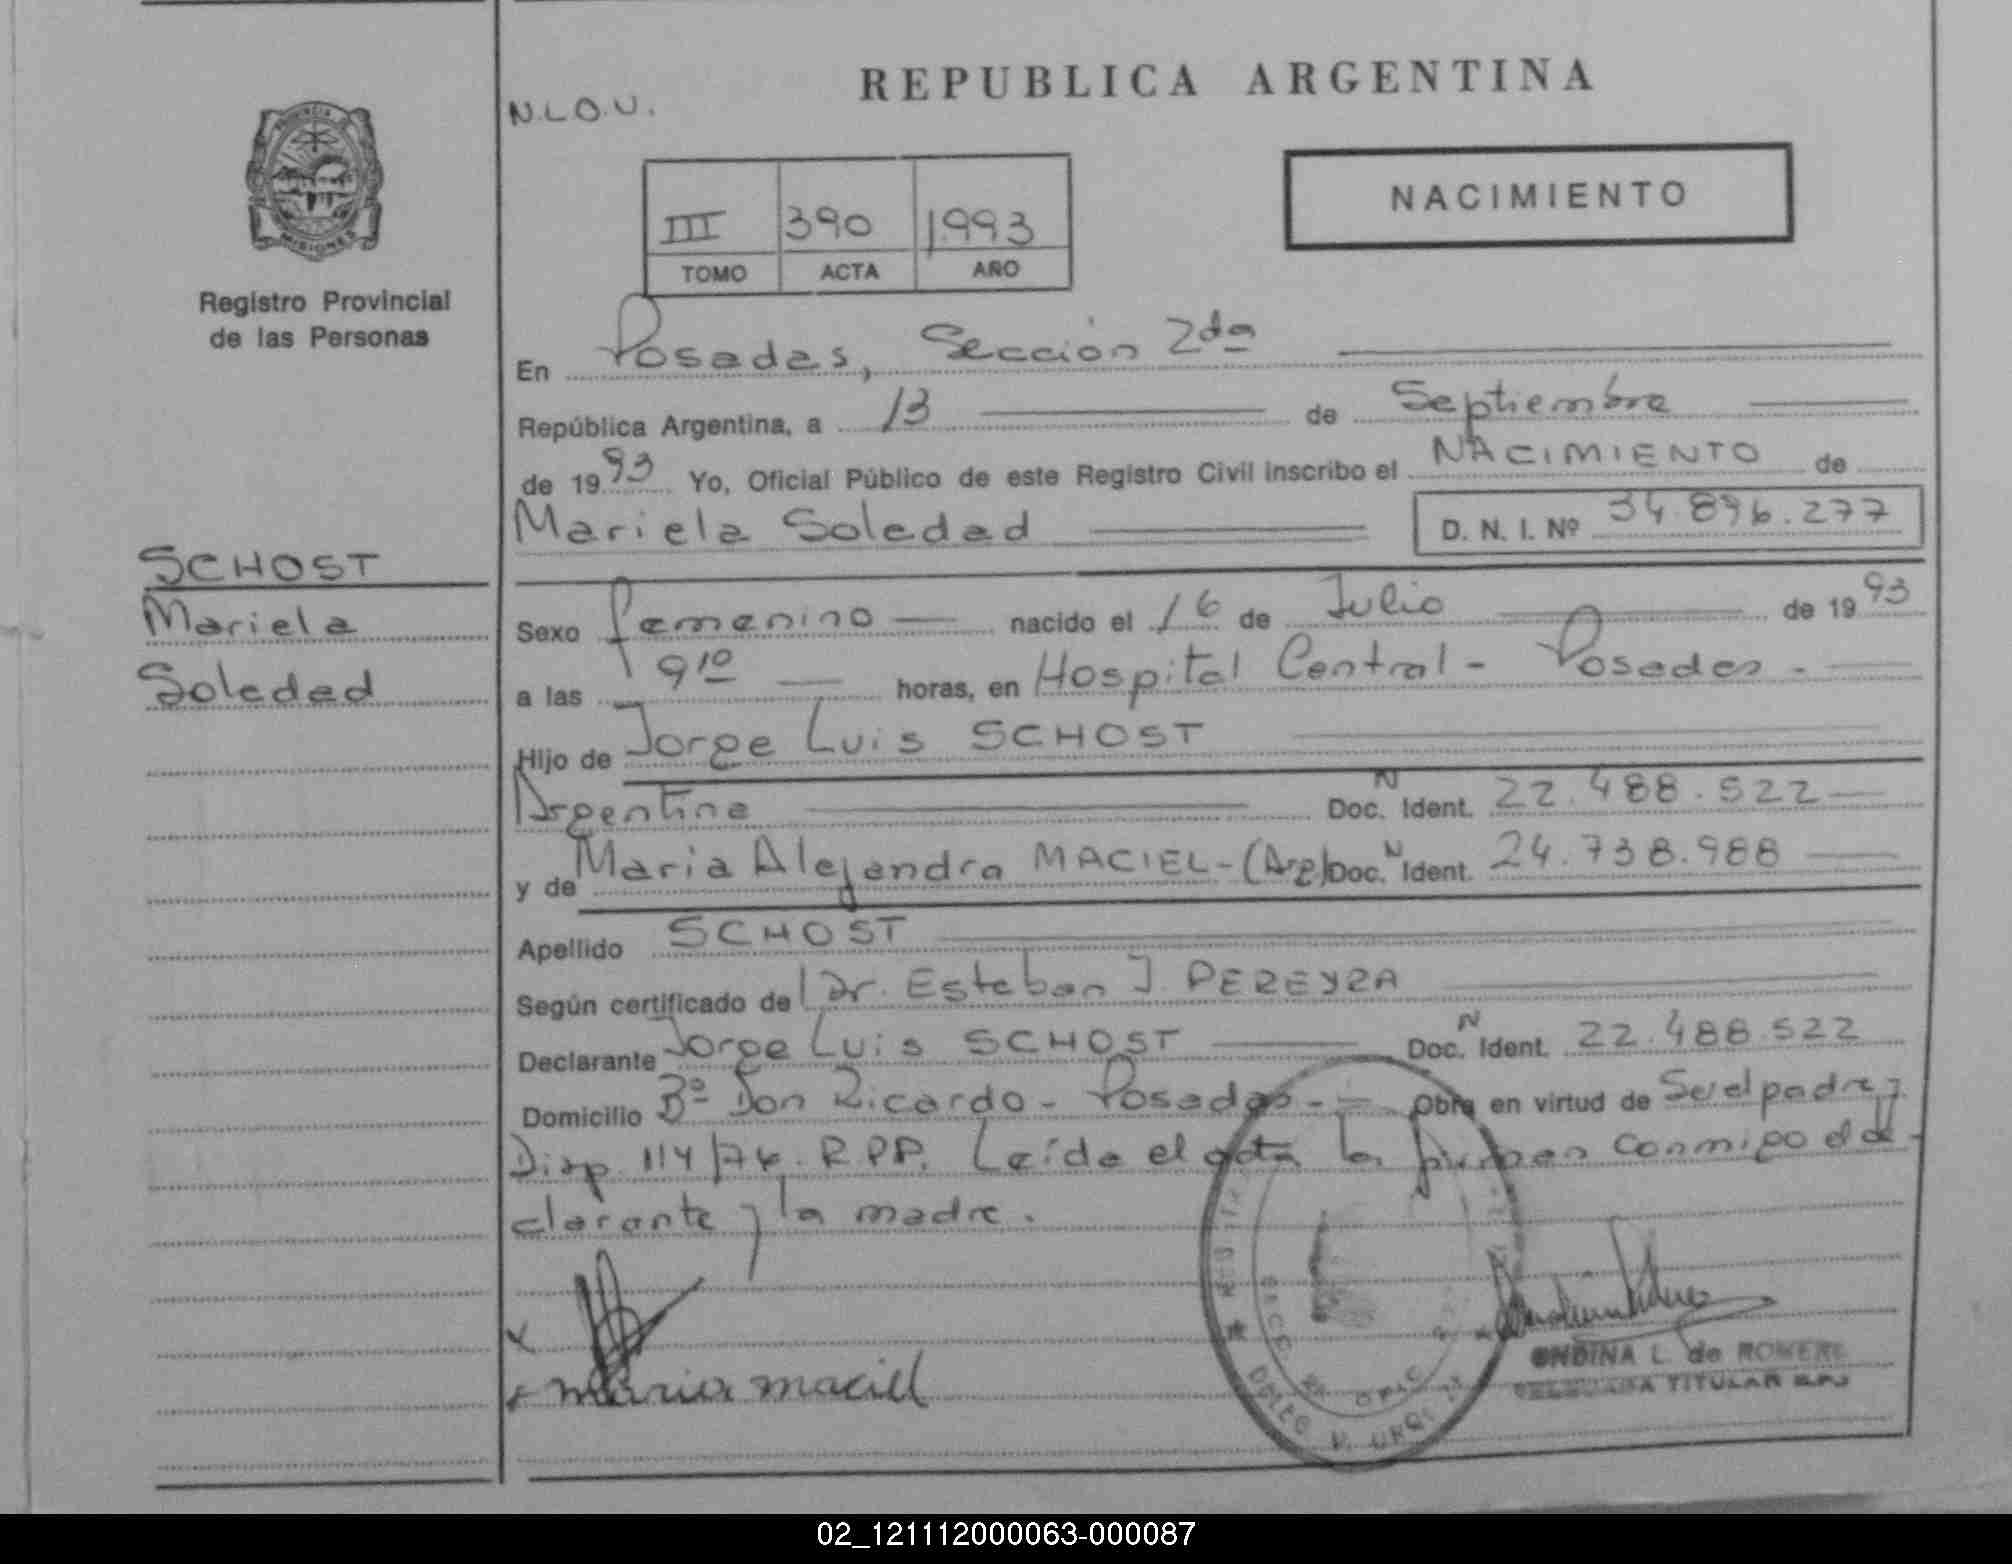 REPUBLICA ARGENTINA
N.L.O.U.
NACIMIENTO
III 390 1993
TOMO ACTA AÑO
PROVINCIA
MISIONES
Registro Provincial
de las Personas
En Posadas, Sección 2da
República Argentina, a 13 de Septiembre
de 1993 Yo, Oficial Público de este Registro Civil inscribo el NACIMIENTO de
Mariela Soledad D. N. I. Nº 34.896.277
SCHOST
Mariela
Soledad
Sexo femenino nacido el 16 de Julio de 1993
a las 9 10 horas, en Hospital Central - Posadas -
Hijo de Jorge Luis SCHOST
Argentina Doc. N Ident. 22.488.522
y de Maria Alejandra MACIEL - (Arg) Doc. N Ident. 24.738.988
Apellido SCHOST
Según certificado de Dr. Esteban J. PEREYRA
Declarante Jorge Luis SCHOST Doc. N Ident. 22.488.522
Domicilio Bº Don Ricardo - Posadas - Obra en virtud de Ser el padre y
Disp. 114/76. R.P.P. Leída el acta la firman conmigo el de-
clarante y la madre.
x
x maria maciel
ONDINA L. de ROMERO
DELEGADA TITULAR
02_121112000063-000087